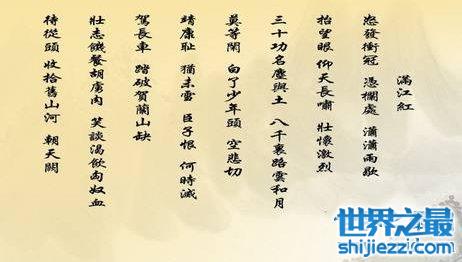 滿江紅
怒發衝冠 憑欄處 瀟瀟雨歇
抬望眼 仰天長嘯 壯懷激烈
三十功名塵與土 八千裏路雲和月
莫等閑 白了少年頭 空悲切
靖康恥 猶未雪 臣子恨 何時滅
駕長車 踏破賀蘭山缺
壯志饑餐胡虜肉 笑談渴飲匈奴血
待從頭 收拾舊山河 朝天闕
世界之最
shijiezz.com